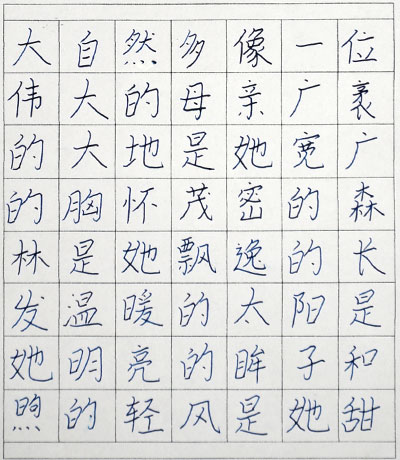 大自然多像一位
伟大的母亲广袤
的大地是她宽广
的胸怀茂密的森
林是她飘逸的长
发温暖的太阳是
她明亮的眸子和
煦的轻风是她甜